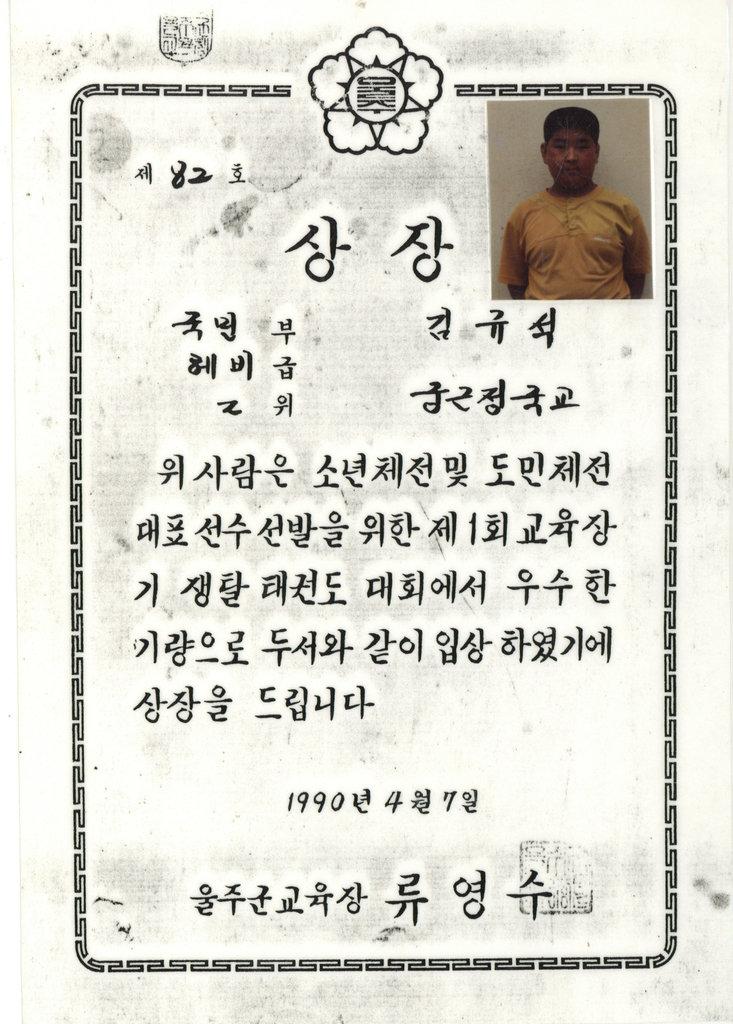 제 82 호
상 장
국민 부 김규석
헤비 급
2 위 궁근정국교
위 사람은 소년체전 및 도민체전
대표선수선발을 위한 제1회 교육장
기 쟁탈 태권도 대회에서 우수한
기량으로 두서와 같이 입상 하였기에
상장을 드립니다
1990년 4월 7일
울주군교육장 류영수